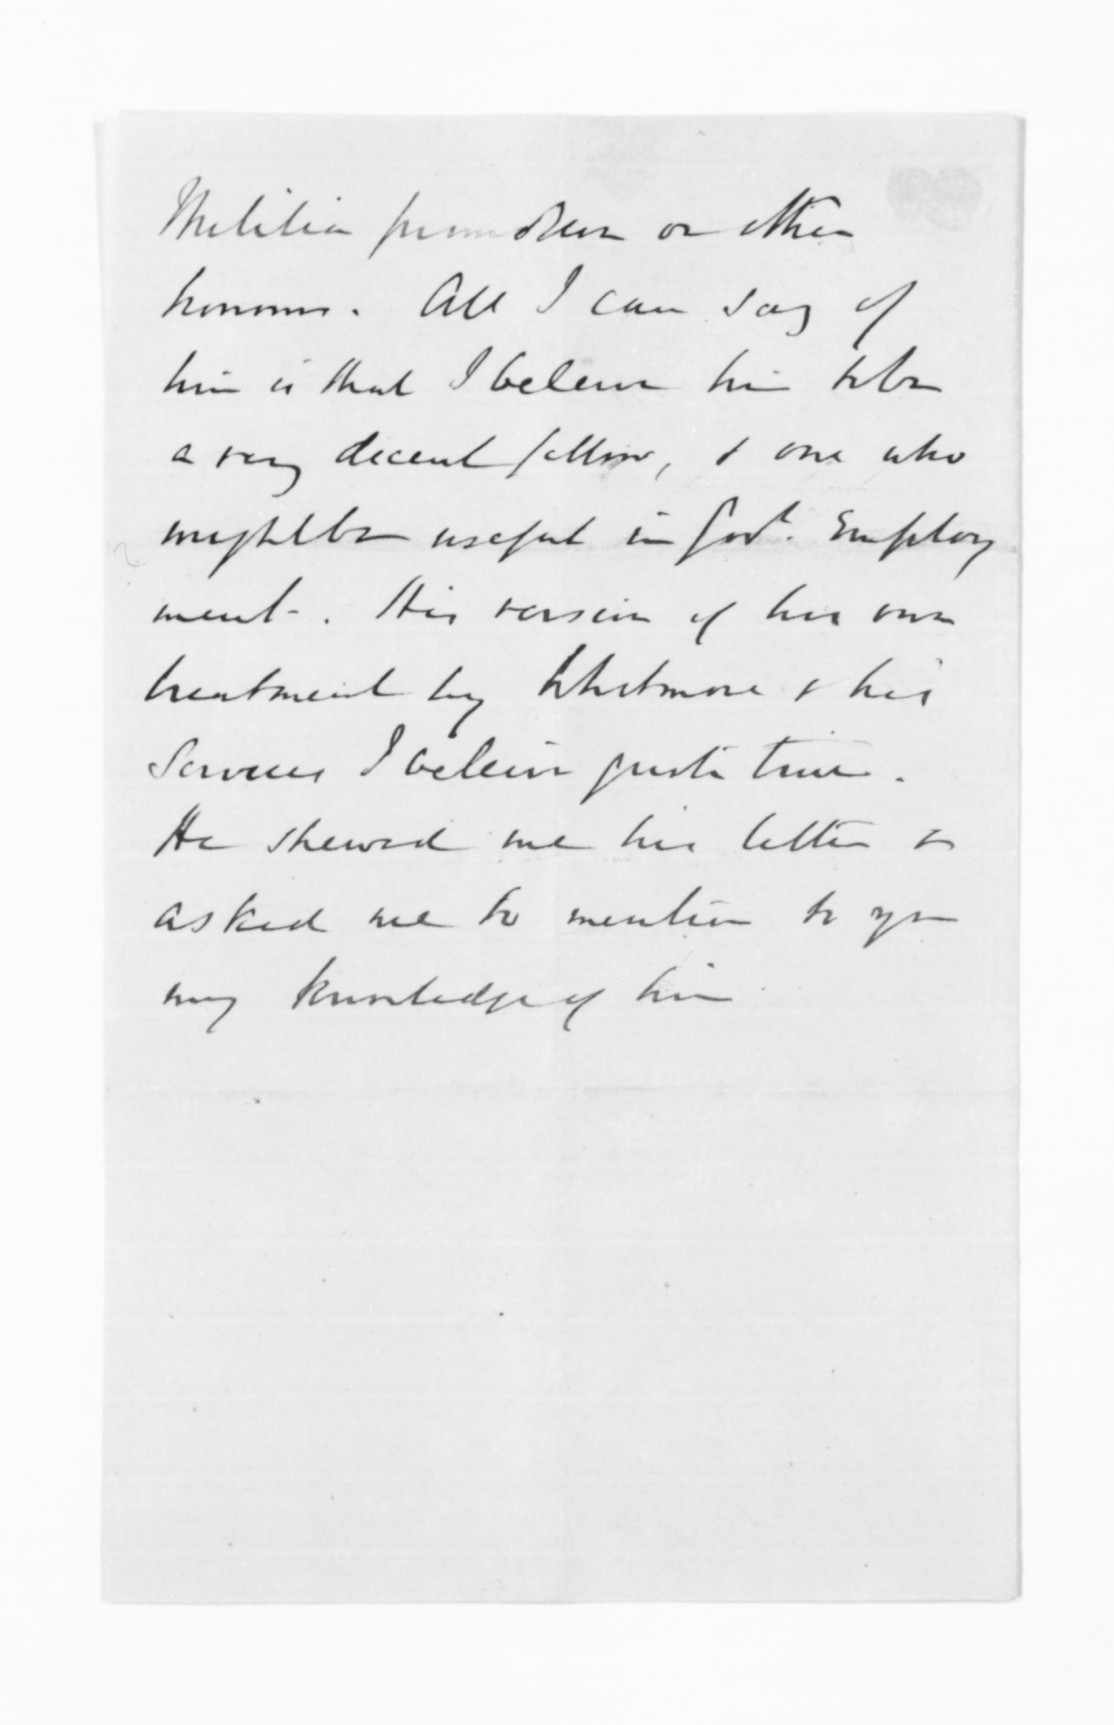 Militia promotion or other
honours. All I can say of
him is that I believe him to be
a very decent fellow, & one who
might be useful in Govt. Employ
ment-. His version of his own
treatment by Whitmore & his
Services I believe quite true.
He shewed me his letter &
asked me to mention to you
my knowledge of him